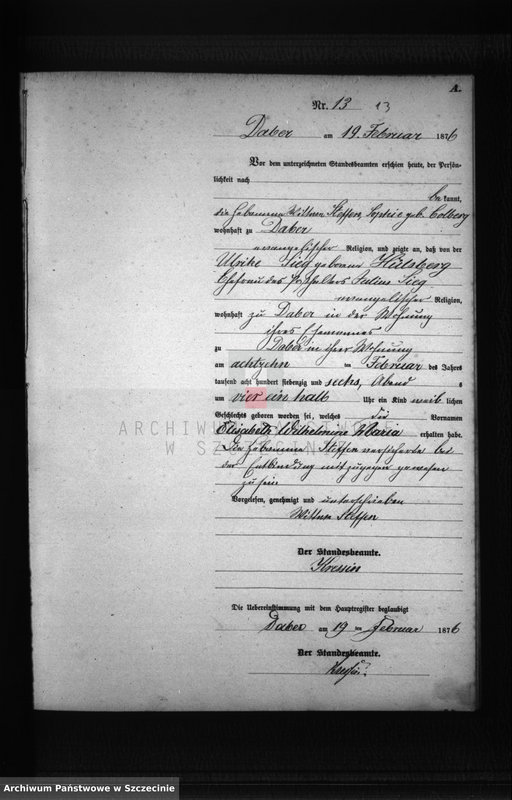 A.
Nr. 13 13
Daber am 19. Februar 1876
Vor dem unterzeichneten Standesbeamten erschien heute, der Persön-
lichkeit nach
be kannt,
die Hebamme Wittwe Steffen, Sophie geb. Colberg
wohnhaft zu Daber
evangelischer Religion, und zeigte an, daß von der
Ulrike Sieg geborene Hülsberg
Ehefrau des Julius Sieg
evangelischer Religion,
wohnhaft zu Daber in der Wohnung
ihres Ehemannes
zu Daber in ihrer Wohnung
am achtzehn ten Februar des Jahres
tausend acht hundert siebenzig und sechs, Abend s
um vier ein halb Uhr ein Kind weib lichen
Geschlechts geboren worden sei, welches die Vornamen
Elisabeth Wilhelmine Maria erhalten habe.
Die Hebamme Steffen versicherte bei
der Entbindung mit zugegen gewesen
zu sein
Vorgelesen, genehmigt und unterschrieben
Wittwe Steffen
Der Standesbeamte.
Kressin
Die Uebereinstimmung mit dem Hauptregister beglaubigt
Daber am 19 ten Februar 1876
Der Standesbeamte.
Kressin.
ARCHIWUM PAŃSTWOWE
W SZCZECINIE
Archiwum Państwowe w Szczecinie